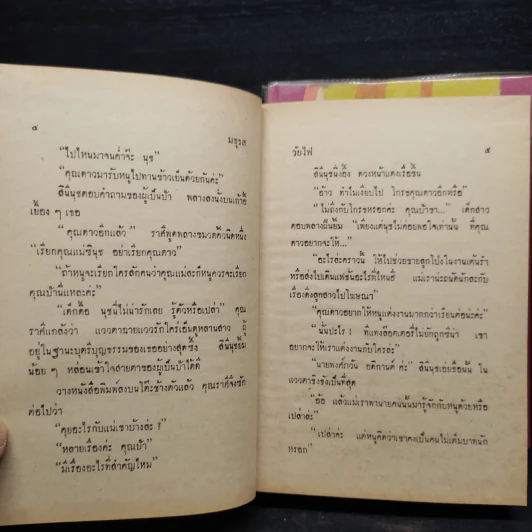 ๔
มธุรส
“ไปไหนมาจนค่ำจ๊ะ นุช”
“คุณดาวมารับหนูไปทานข้าวเย็นด้วยกันค่ะ”
สินีนุชตอบคำถามของผู้เป็นป้า พลางลงนั่งบนเก้าอี้
เยื้อง ๆ เธอ
“คุณดาวอีกแล้ว” ราศีพูดพลางขมวดคิ้วนิดหนึ่ง
“เรียกคุณแม่ซินุช อย่าเรียกคุณดาว”
“ถ้าหนูจะเรียกใครสักคนว่าคุณแม่ละก็หนูควรจะเรียก
คุณป้านี่แหละค่ะ”
“เด็กดื้อ นุชนี่ไม่น่ารักเลย รู้ตัวหรือเปล่า” คุณ
ราศีแกล้งว่า แววตาฉายแววรักใคร่เอ็นดูหลานสาว ผู้
อยู่ในฐานะบุตรีบุญธรรมของเธออย่างสุดซึ้ง สินีนุชยิ้ม
น้อย ๆ หล่อนเข้าใจสายตาของผู้เป็นป้าได้ดี
วางหนังสือพิมพ์ลงบนโต๊ะข้างตัวแล้ว คุณราศีจึงซัก
ต่อไปว่า
“คุยอะไรกับแม่เขาบ้างล่ะ ?”
“หลายเรื่องค่ะ คุณป้า”
“มีเรื่องอะไรที่สำคัญไหม”
วัยไฟ
๕
สินีนุชนิ่งอึ้ง ดวงหน้าแดงเรื่อขึ้น
“อ้าว ทำไมเงียบไป โกรธคุณดาวอีกหรือ”
“ไม่ถึงกับโกรธหรอกค่ะ คุณป้าขา...” เด็กสาว
ตอบพลางฝืนยิ้ม “เพียงแต่นุชไม่ค่อยพอใจเท่านั้น ที่คุณ
ดาวอยากจะให้...”
“อะไรล่ะคราวนี้ ให้ไปช่วยขายลูกโป่งในงานเต้นรำ
หรือส่งไปเดินแฟชั่นอะไรที่ไหนฮึ แม่เราน่ะถนัดนักละกับ
เรื่องดึงลูกสาวไปโฆษณา”
“คุณดาวอยากให้หนูแต่งงานมากกว่าเรียนต่อน่ะค่ะ”
“นั่นปะไร ! ที่แต่งล็อตเตอรี่ไม่ยักถูกซีน่า เขา
อยากจะให้เราแต่งงานกับใครล่ะ”
“นายพงศ์ภวัน อติกานต์ ค่ะ” สินีนุชเอ่ยชื่อนั้น ใน
แววตาชิงชังเป็นที่สุด
“อ้อ แล้วแม่เราพานายคนนั้นมารู้จักกับหนูด้วยหรือ
เปล่าล่ะ”
“เปล่าค่ะ แต่หนูคิดว่าเขาคงเป็นคนไม่เต็มบาทนัก
หรอก”